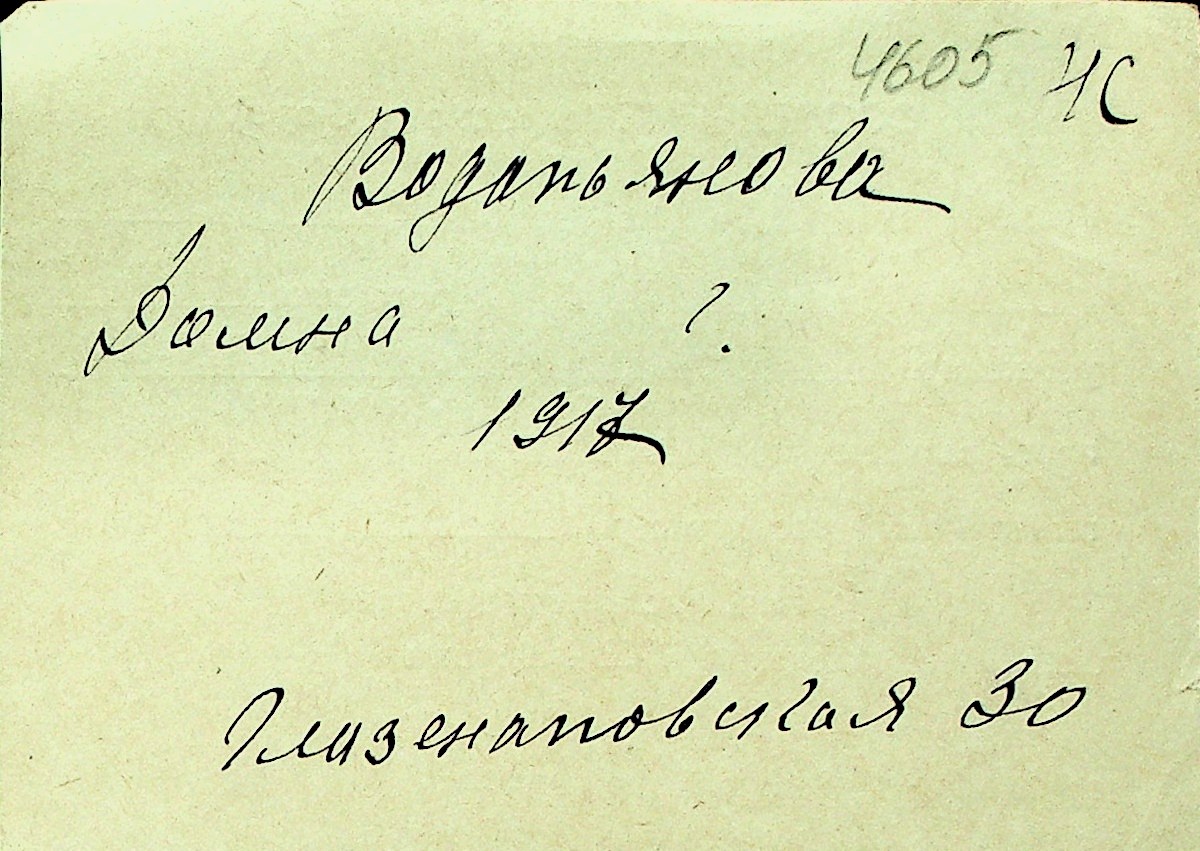 4605 ЧС
Водопьянова
Домна ?
1917
Глазенаповская 30